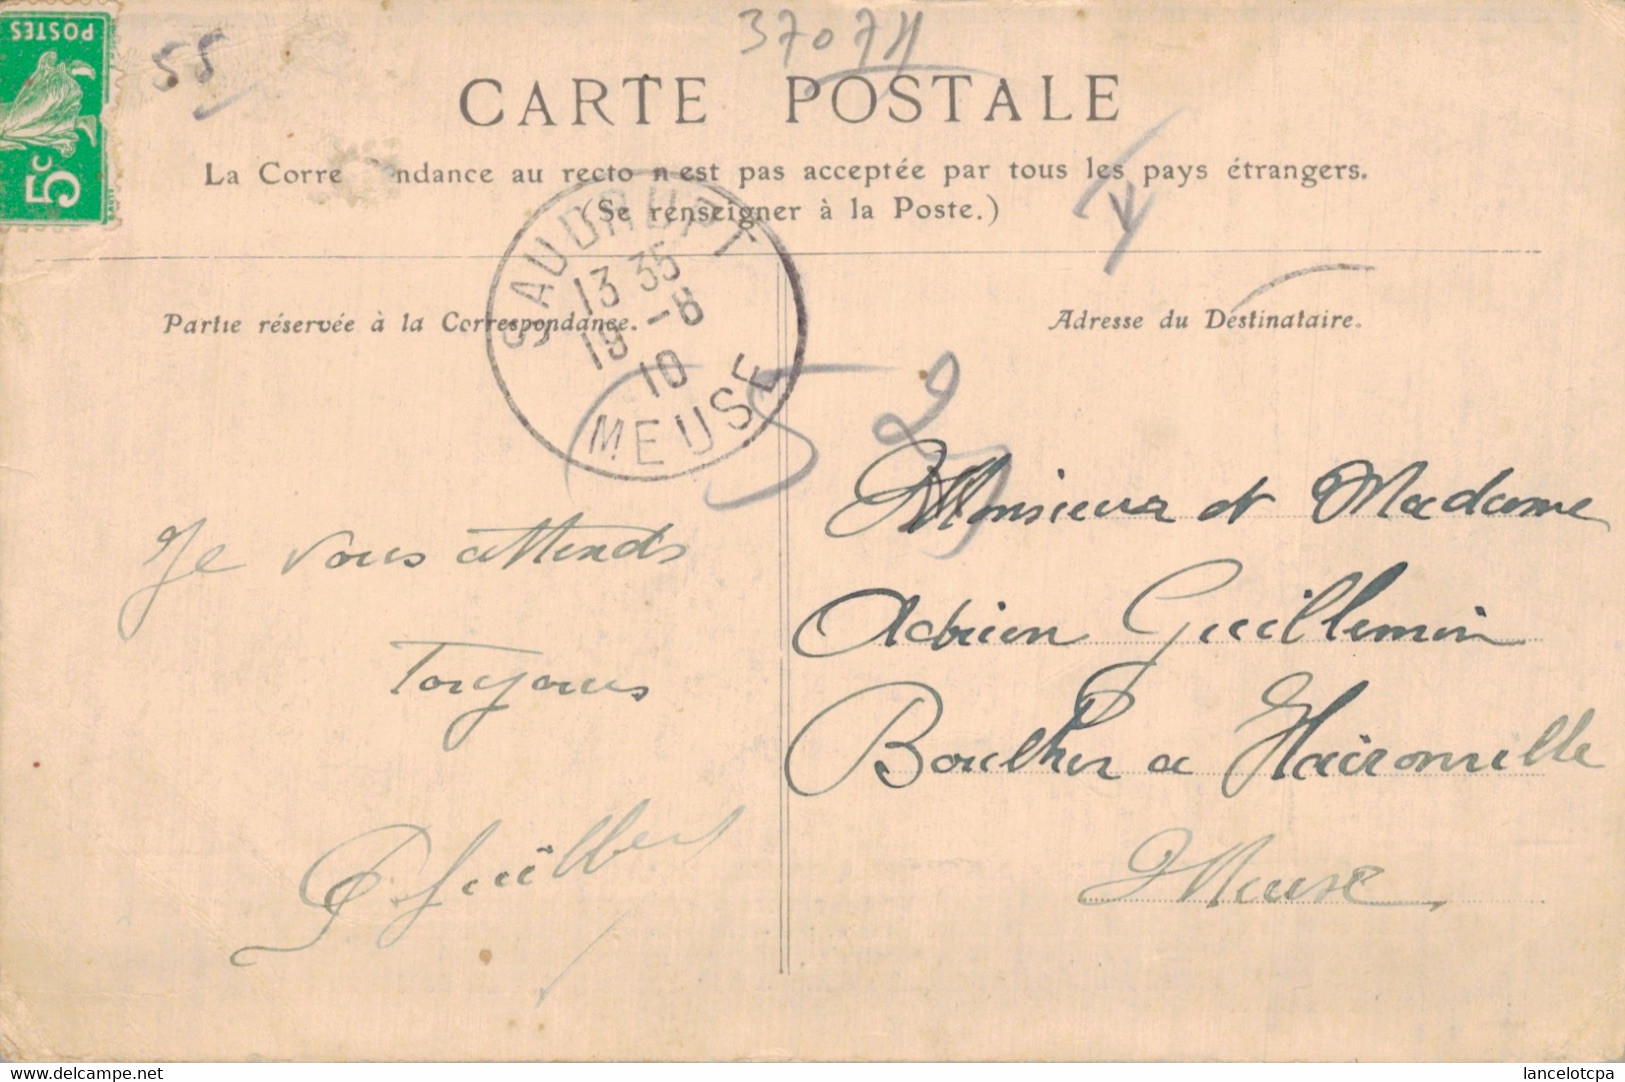 POSTES
5c
55
37074
CARTE POSTALE
La Corre ndance au recto n'est pas acceptée par tous les pays étrangers.
(Se renseigner à la Poste.)
SAUDRUPT
13 35
19 -8
10
MEUSE
Partie réservée à la Correspondance.
Adresse du Destinataire.
Je vous attends
Toujours
Monsieur et Madame
Adrien Guillemin
Boulher a Haironville
Meuse
delcampe.net
lancelotcpa